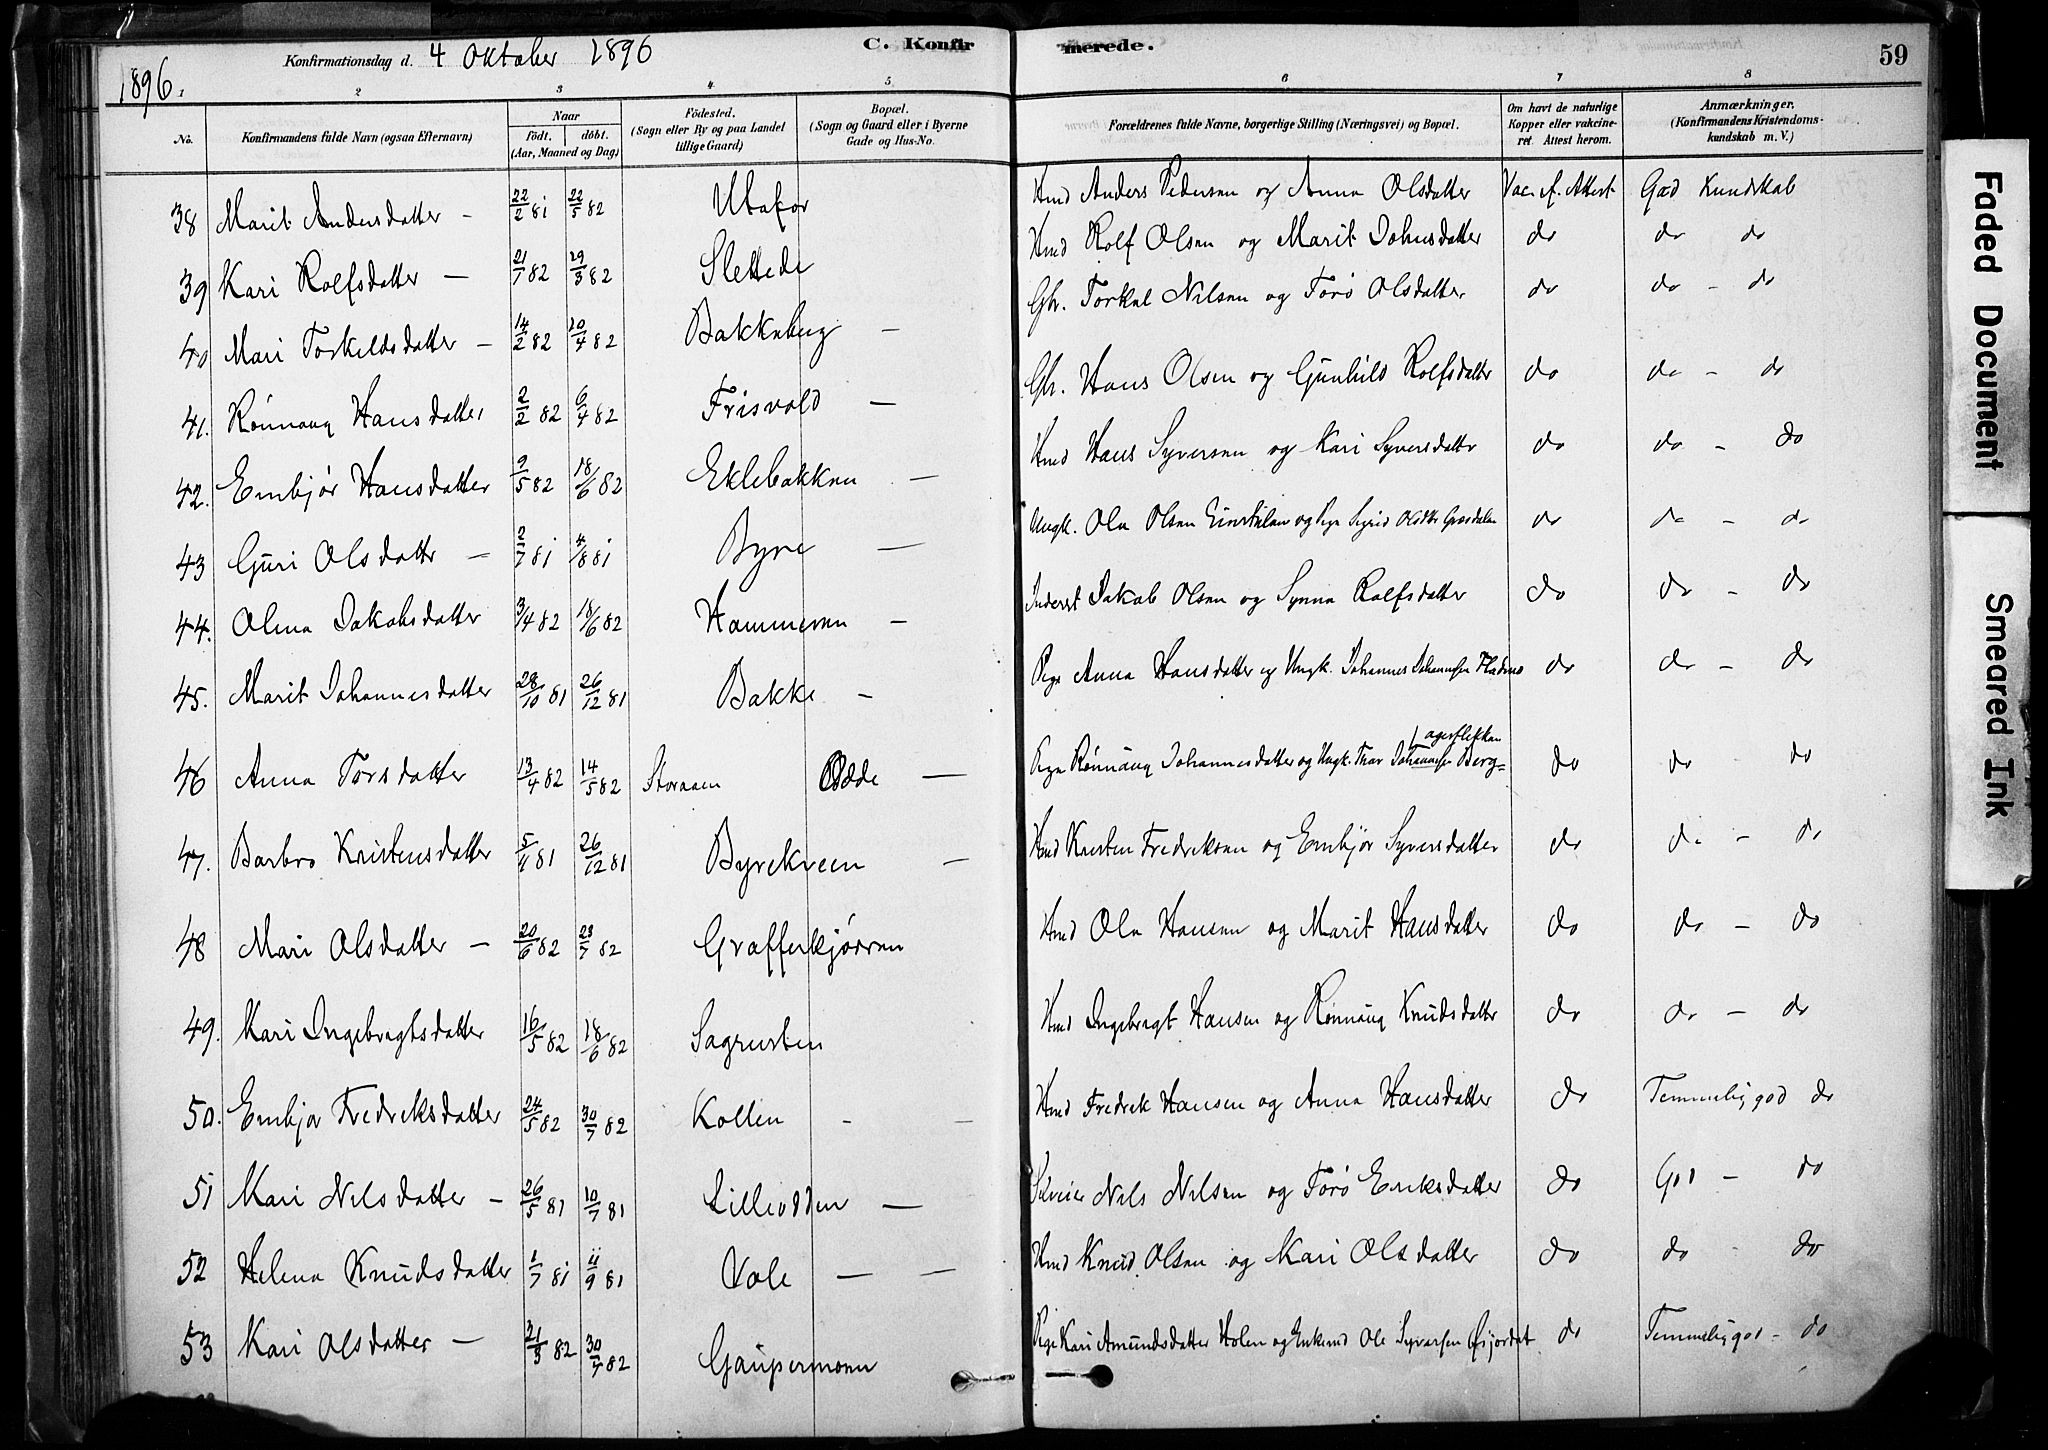 Konfirmationsdag d. 4 Oktober 1896
C. Konfirmerede.
59
1896
1 2 3 4 5 6 7 8
No.
Konfirmandens fulde Navn (ogsaa Efternavn)
Naar
födt. döbt.
(Aar, Maaned og Dag)
Födested.
(Sogn eller By og paa Landet tillige Gaard)
Bopæl.
(Sogn og Gaard eller i Byerne Gade og Hus-No.
Forældrenes fulde Navne, borgerlige Stilling (Næringsvei) og Bopæl.
Om havt de naturlige Kopper eller vakcineret. Attest herom.
Anmærkninger.
(Konfirmandens Kristendomskundskab m. V.)
38 Marit Andersdatter - 22/2 81 22/5 82 Utafor Hmd Anders Pedersen og Anna Olsdatter Vac. f. Attest God Kundskab
39 Kari Rolfsdatter - 21/1 82 29/3 82 Slettede Hmd Rolf Olsen og Marit Johnsdatter do do do
40 Mari Torkeldsdatter - 14/2 82 20/4 82 Bakkeberg - Gbr. Torkel Nilsen og Torø Olsdatter do do - do
41. Rönnaug Hansdatter 2/2 82 6/4 82 Frisvold - Gbr. Hans Olsen og Gunhild Rolfsdatter do do - do
42. Embjør Hansdatter 9/5 82 18/6 82 Eklebakken - Hmd Hans Syversen og Kari Syversdatter do do - do
43 Guri Olsdatter - 2/7 81 4/8 81 Byre - Ungk. Ole Olsen og Pige Sigrid Olsdtr do do - do
44. Olma Jakobsdatter 3/4 82 18/6 82 Hammeren - Inderst Jakob Olsen og Synna Rolfsdatter do do - do
45. Marit Johannesdatter 28/10 81 26/12 81 Bakke - Pige Anna Hansdatter og Ungk. Johannes Johannessen do do - do
46 Anna Torsdatter 13/4 82 14/5 82 Storaaen Odde - Pige Rönnaug Johannesdatter og Ungk. Thor Johannessen Berg= do do - do
47. Barbro Kristensdatter 5/4 81 26/12 81 Byrekveen - Hmd Kristen Fredriksen og Embjør Syversdatter do do - do
48 Mari Olsdatter - 20/6 82 23/7 82 Grafferkjørren Hmd Ole Hansen og Marit Hansdatter do do - do
49. Kari Ingebregtsdatter 16/5 82 18/6 82 Sagrusten Hmd Ingebregt Hansen og Rönnaug Knudsdatter do do - do
50. Embjør Fredriksdatter 24/5 82 30/7 82 Kollen - - Hmd Fredrik Hansen og Anna Hansdatter do Temmelig god do
51 Kari Nilsdatter - 26/5 81 10/7 81 Lilleodden - Nils Nilsen og Torø Eriksdatter do God - do
52 Helena Knudsdatter 1/7 81 11/9 81 Vole - - Hmd Knud Olsen og Kari Olsdatter do do - do
53 Kari Olsdatter - 21/3 82 30/7 82 Gaupermoen Pige Kari Amundsdatter Holen og Enkemd Ole Syversen do Temmelig god - do
Faded Document
Smeared Ink